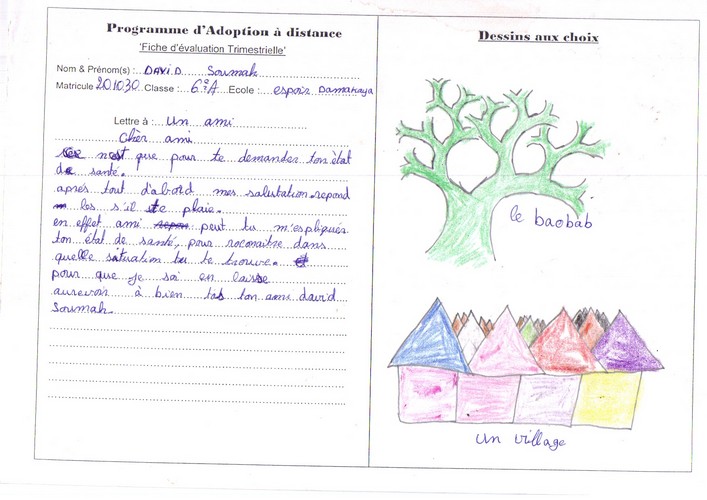 Programme d'Adoption à distance
'Fiche d'évaluation Trimestrielle'
Nom & Prénom(s) : DAVID Soumah
Matricule 201030 Classe : 6e A Ecole : espoir Damakaya
Lettre à : un ami
Cher ami
n'est que pour te demander ton état
de santé.
apres tout d'abord mes salutation repond
les s'il te plaie.
en effet ami peut tu m'espliquer
ton état de santé, pour roconaitre dans
quelle situation tu te trouve.
pour que je soi en laisse
aurevoir à bien tot ton ami david
Soumah.
Dessins aux choix
le baobab
un village